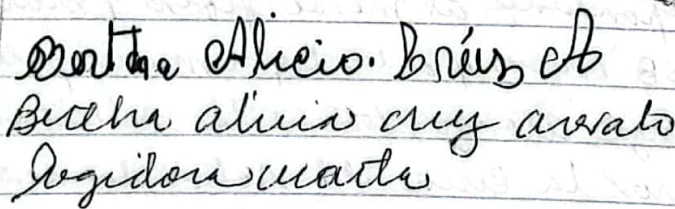 Bertha Alicia. Crúz A
Bertha alicia cruz
Regidora cuarta